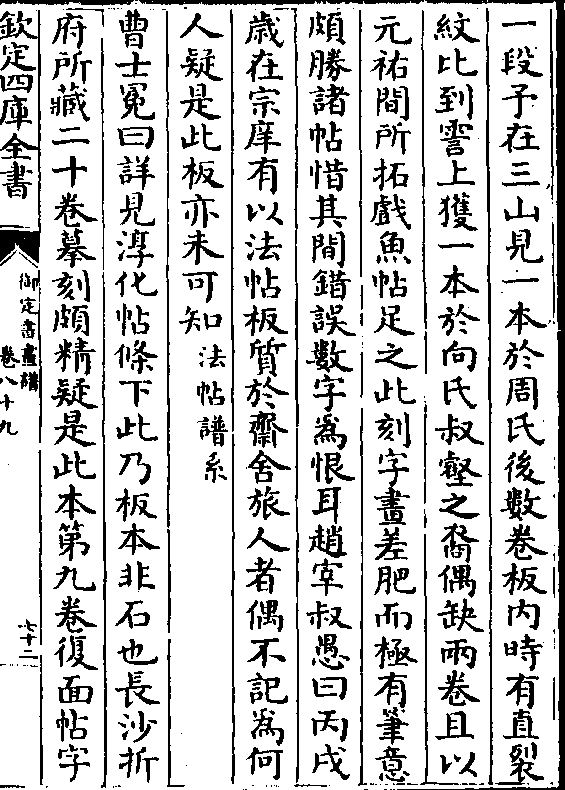 一段予在三山見一本於周氏後數卷板内時有直裂
紋比到霅上獲一本於向氏叔堅之裔偶缺兩卷且以
元祐間所拓戲魚帖足之此刻字畫差肥而極有筆意
頗勝諸帖惜其間錯誤數字為恨耳趙宰叔愚曰丙戌
歲在宗庠有以法帖板質於齋舍旅人者偶不記為何
人疑是此板亦未可知法帖譜系
曹士冕曰詳見淳化帖條下此乃板本非石也長沙折
府所藏二十卷摹刻頗精疑是此本第九卷復面帖字
欽定四庫全書
御定書畫譜
卷八十九
七十二